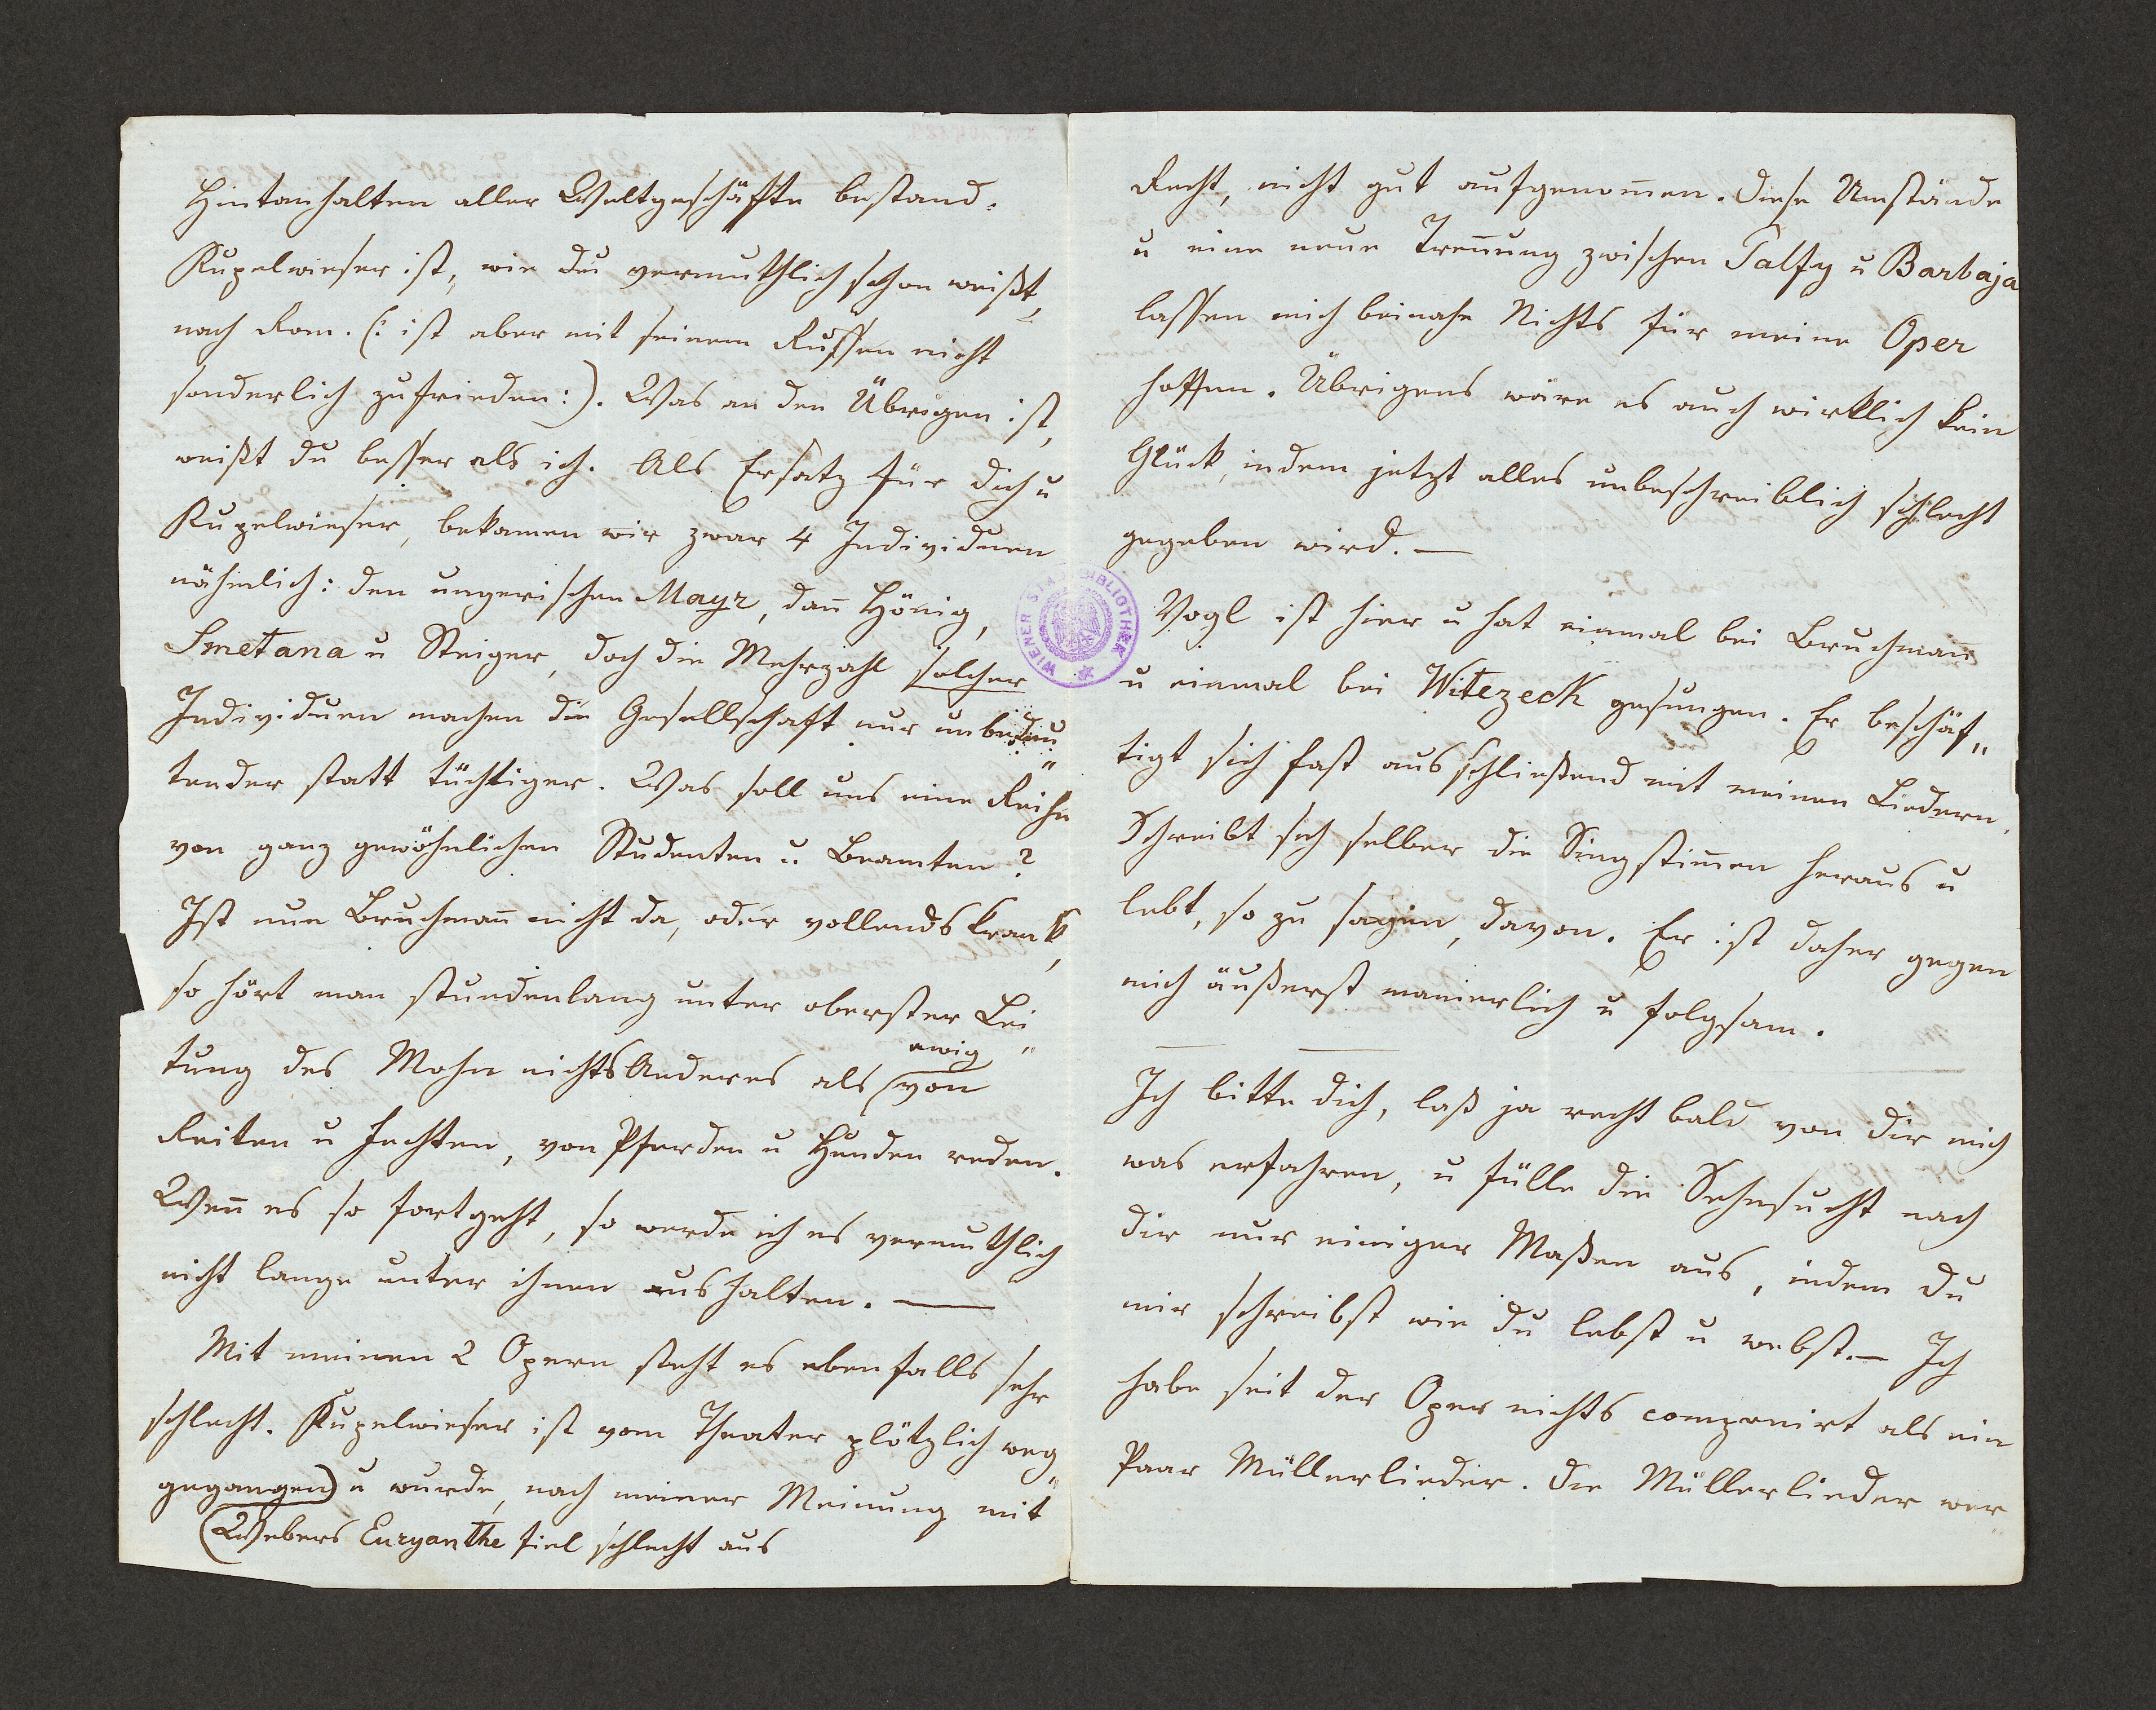 Hintanhalten aller Weltgeschäfte bestand.
Kupelwieser ist, wie du vermuthlich schon weißt,
nach Rom. (: ist aber mit seinem Russen nicht
sonderlich zufrieden :). Was an den Übrigen ist,
weißt du besser als ich. Als Ersatz für dich u
Kupelwieser, bekamen wir zwar 4 Individuen
nähmlich: den ungerischen Mayr, dañ Hönig,
Smetana u Steiger, doch die Mehrzahl solcher
Individuen machen die Gesellschaft nur unbedeu„
tender statt tüchtiger. Was soll uns eine Reihe
von ganz gewöhnlichen Studenten u. Beamten?
Ist nun Bruchmañ nicht da, oder vollends krank,
so hört man stundenlang unter oberster Lei„
tung des Mohn nichts Anderes als ewig von
Reiten u Fechten, von Pferden u Hunden reden.
Weñ es so fortgeht, so werde ich es vermuthlich
nicht lange unter ihnen aushalten. —
Mit meinen 2 Opern steht es ebenfalls sehr
schlecht. Kupelwieser ist vom Theater plötzlich weg„
gegangen) u wurde, nach meiner Meinung mit
(Webers Euryanthe fiel schlecht aus
Recht, nicht gut aufgenom̄en. Diese Umstände
u eine neue Treñung zwischen Palfy u Barbaja
lassen mich beinahe Nichts für meine Oper
hoffen. Übrigens wäre es auch wirklich kein
Glück, indem jetzt alles unbeschreiblich schlecht
gegeben wird. —
Vogl ist hier u hat einmal bei Bruchmañ
u einmal bei Witezeck gesungen. Er beschäf„
tigt sich fast ausschließend mit meinen Liedern.
Schreibt sich selber die Singstim̄en heraus u
lebt, so zu sagen, davon. Er ist daher gegen
mich äußerst manierlich u folgsam.
Ich bitte dich, laß ja recht bald von dir mich
was erfahren, u fülle die Sehnsucht nach
dir nur einiger Maßen aus, indem du
mir schreibst wie du lebst u webst. — Ich
habe seit der Oper nichts componirt als ein
Paar Müllerlieder. Die Müllerlieder wer„
WIENER STADTBIBLIOTHEK